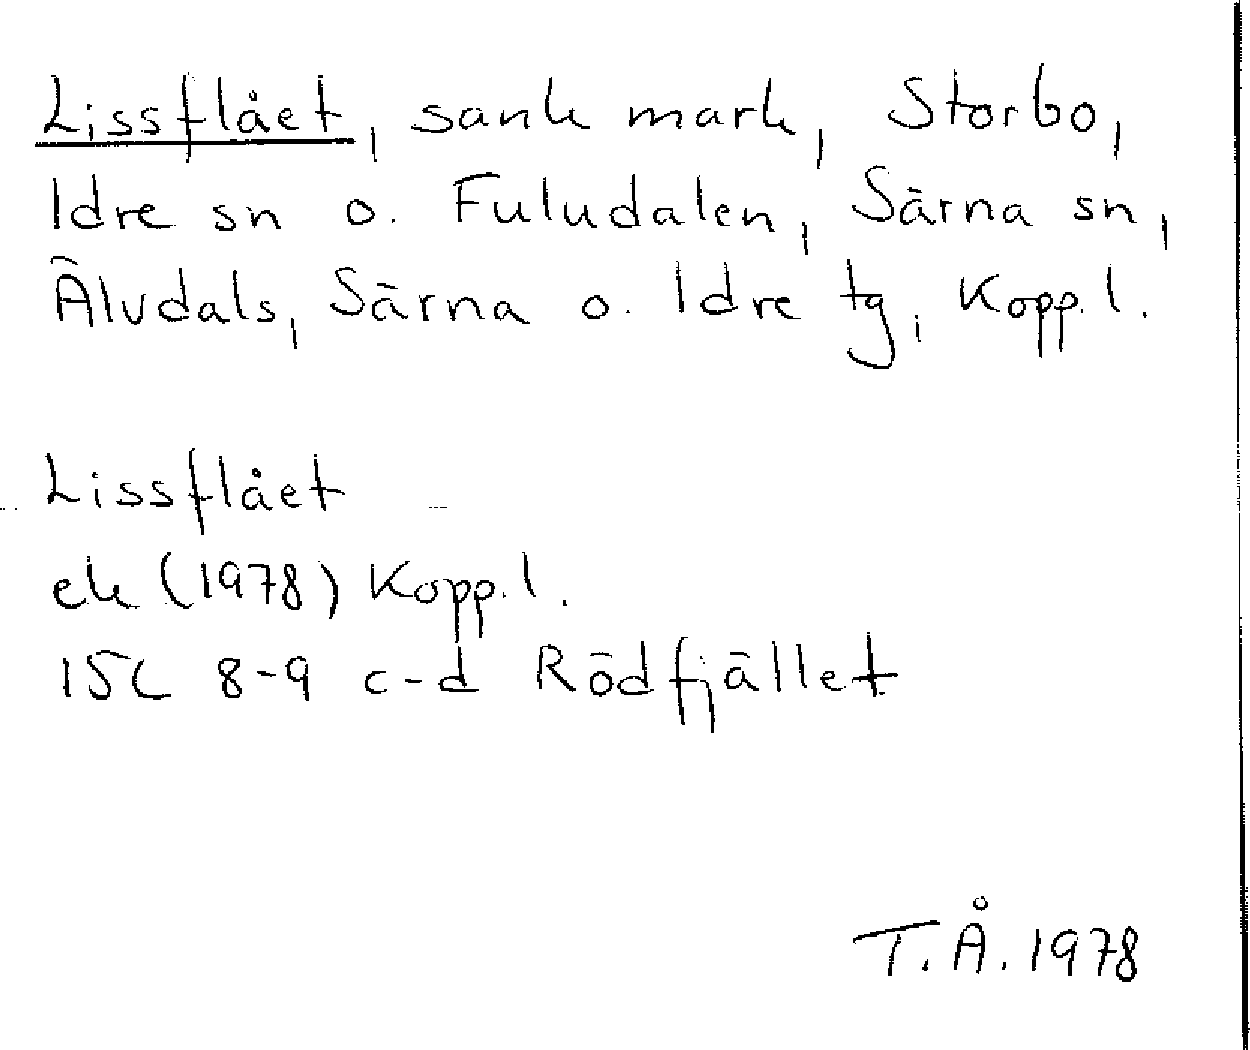 Lissflået, sank mark, Storbo,
Idre sn o. Fuludalen, Särna sn,
Älvdals, Särna o. Idre tg, Kopp.l.
Lissflået
ek (1978) Kopp.l.
15C 8-9 c-d Rödfjället
T.Å. 1978